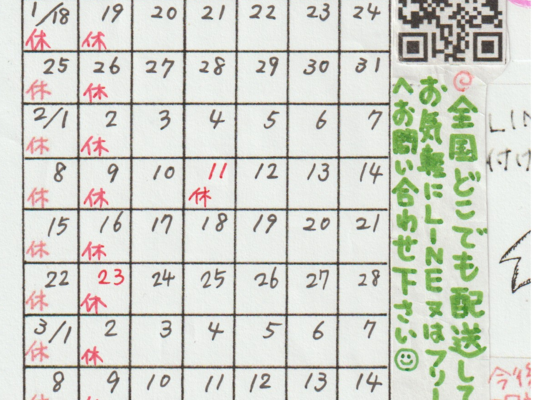 1/18 19 20 21 22 23 24
休 休
25 26 27 28 29 30 31
休 休
2/1 2 3 4 5 6 7
休 休
8 9 10 11 12 13 14
休 休 休
15 16 17 18 19 20 21
休 休
22 23 24 25 26 27 28
休 休
3/1 2 3 4 5 6 7
休 休
8 9 10 11 12 13 14
全国どこでも配送して
お気軽にLINE又はフリー
へお問い合わせ下さい
LIN
付け
今後